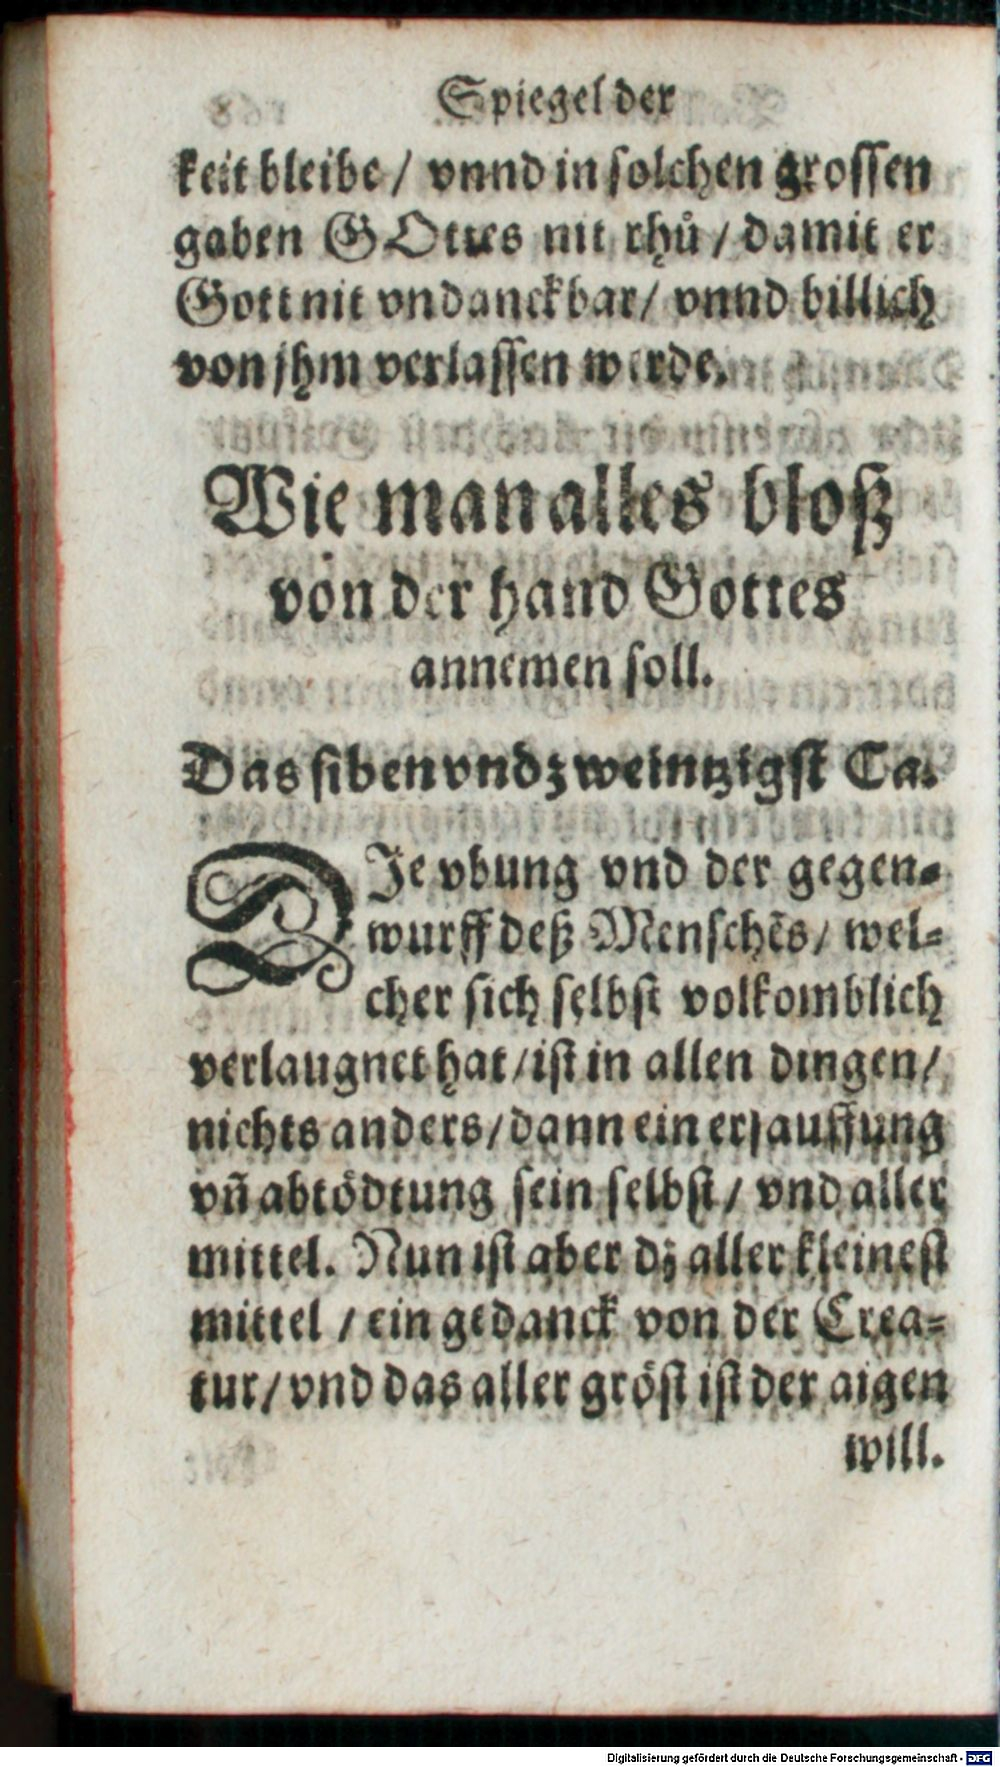 Spiegel der
keit bleibe / vnnd in solchen grossen
gaben GOttes nit rhů / damit er
Gott nit vndanckbar / vnnd billich
von jhm verlassen werde.
Wie man alles bloß
von der hand Gottes
annemen soll.
Das siben vnd zweintzigst Ca.
DIe vbung vnd der gegen=
wurff deß Menschẽs / wel=
cher sich selbst volkomblich
verlaugnet hat / ist in allen dingen /
nichts anders / dann ein ersauffung
vñ abtödtung sein selbst / vnd aller
mittel. Nun ist aber dz aller kleinest
mittel / ein gedanck von der Crea=
tur / vnd das aller gröst ist der aigen
will.
Digitalisierung gefördert durch die Deutsche Forschungsgemeinschaft - DFG